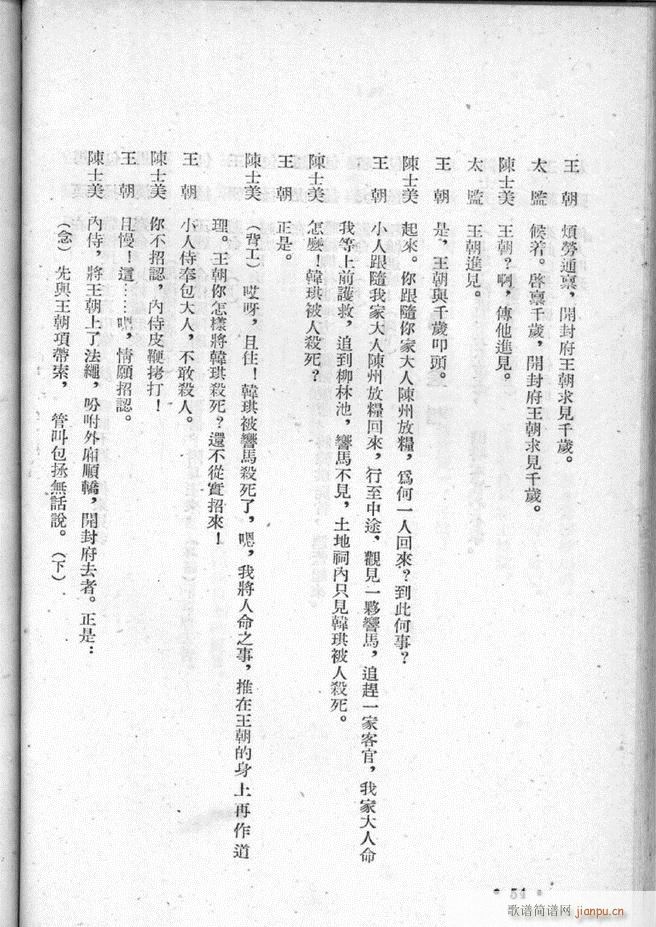 王　朝　煩勞通禀，開封府王朝求見千歲。
太　監　候着。啓禀千歲，開封府王朝求見千歲。
陳士美　王朝？啊，傳他進見。
太　監　王朝進見。
王　朝　是，王朝與千歲叩頭。
陳士美　起來。你跟隨你家大人陳州放糧，爲何一人回來？到此何事？
王　朝　小人跟隨我家大人陳州放糧回來，行至中途，觀見一夥響馬，追趕一家客官，我家大人命
我等上前護救，追到柳林池，響馬不見，土地祠內只見韓琪被人殺死。
陳士美　怎麽！韓琪被人殺死？
王　朝　正是。
陳士美　（背工）　哎呀，且住！韓琪被響馬殺死了，嗯，我將人命之事，推在王朝的身上再作道
理。王朝你怎樣將韓琪殺死？還不從實招來！
王　朝　小人侍奉包大人，不敢殺人。
陳士美　你不招認，內侍皮鞭拷打！
王　朝　且慢！這……嗯，情願招認。
陳士美　內侍，將王朝上了法繩，吩咐外廂順轎，開封府去者。正是：
（念）　先與王朝項帶索，　管叫包拯無話說。（下）
• 54 •
歌谱简谱网 jianpu.cn